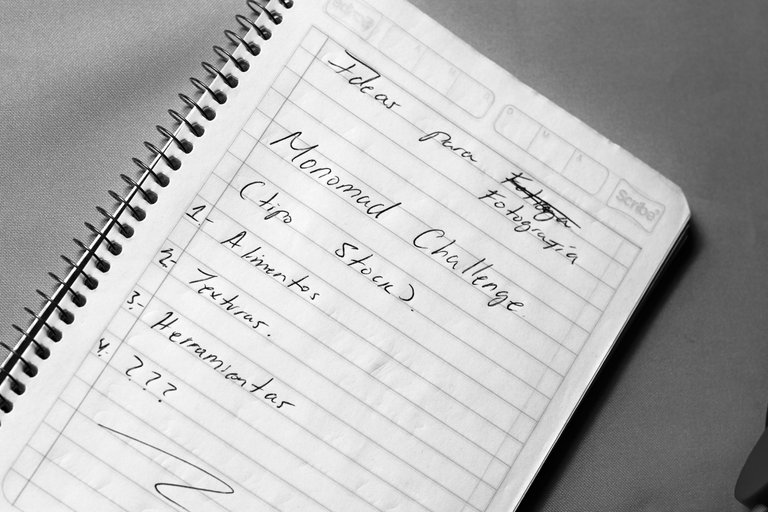 Ideas para
Fotografía
Monomad Challenge
(tipo Stock).
1.- Alimentos
2.- Texturas.
3.- Herramientas
4.- ???
scribe